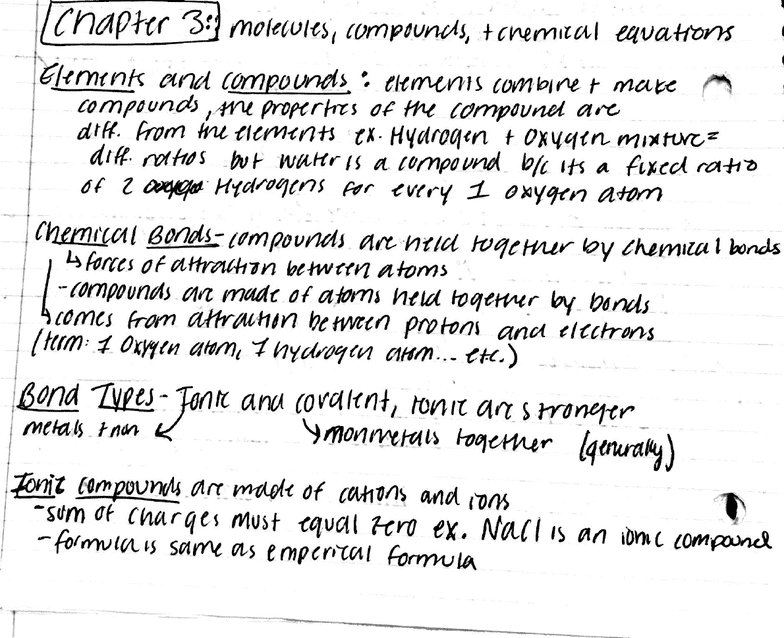 Chapter 3: molecules, compounds, + chemical equations
Elements and compounds: elements combine + make
compounds, the properties of the compound are
diff. from the elements ex. Hydrogen + Oxygen mixture =
diff. ratios but water is a compound b/c its a fixed ratio
of 2 Hydrogens for every 1 oxygen atom
Chemical Bonds - compounds are held together by chemical bonds
↳ forces of attraction between atoms
- compounds are made of atoms held together by bonds
↳ comes from attraction between protons and electrons
(term: 1 Oxygen atom, 1 hydrogen atom... etc.)
Bond Types - Ionic and covalent, ionic are stronger
metals + non ↙ ↘ nonmetals together (generally)
Ionic compounds are made of cations and ions
- sum of charges must equal zero ex. NaCl is an ionic compound
- formula is same as emperical formula